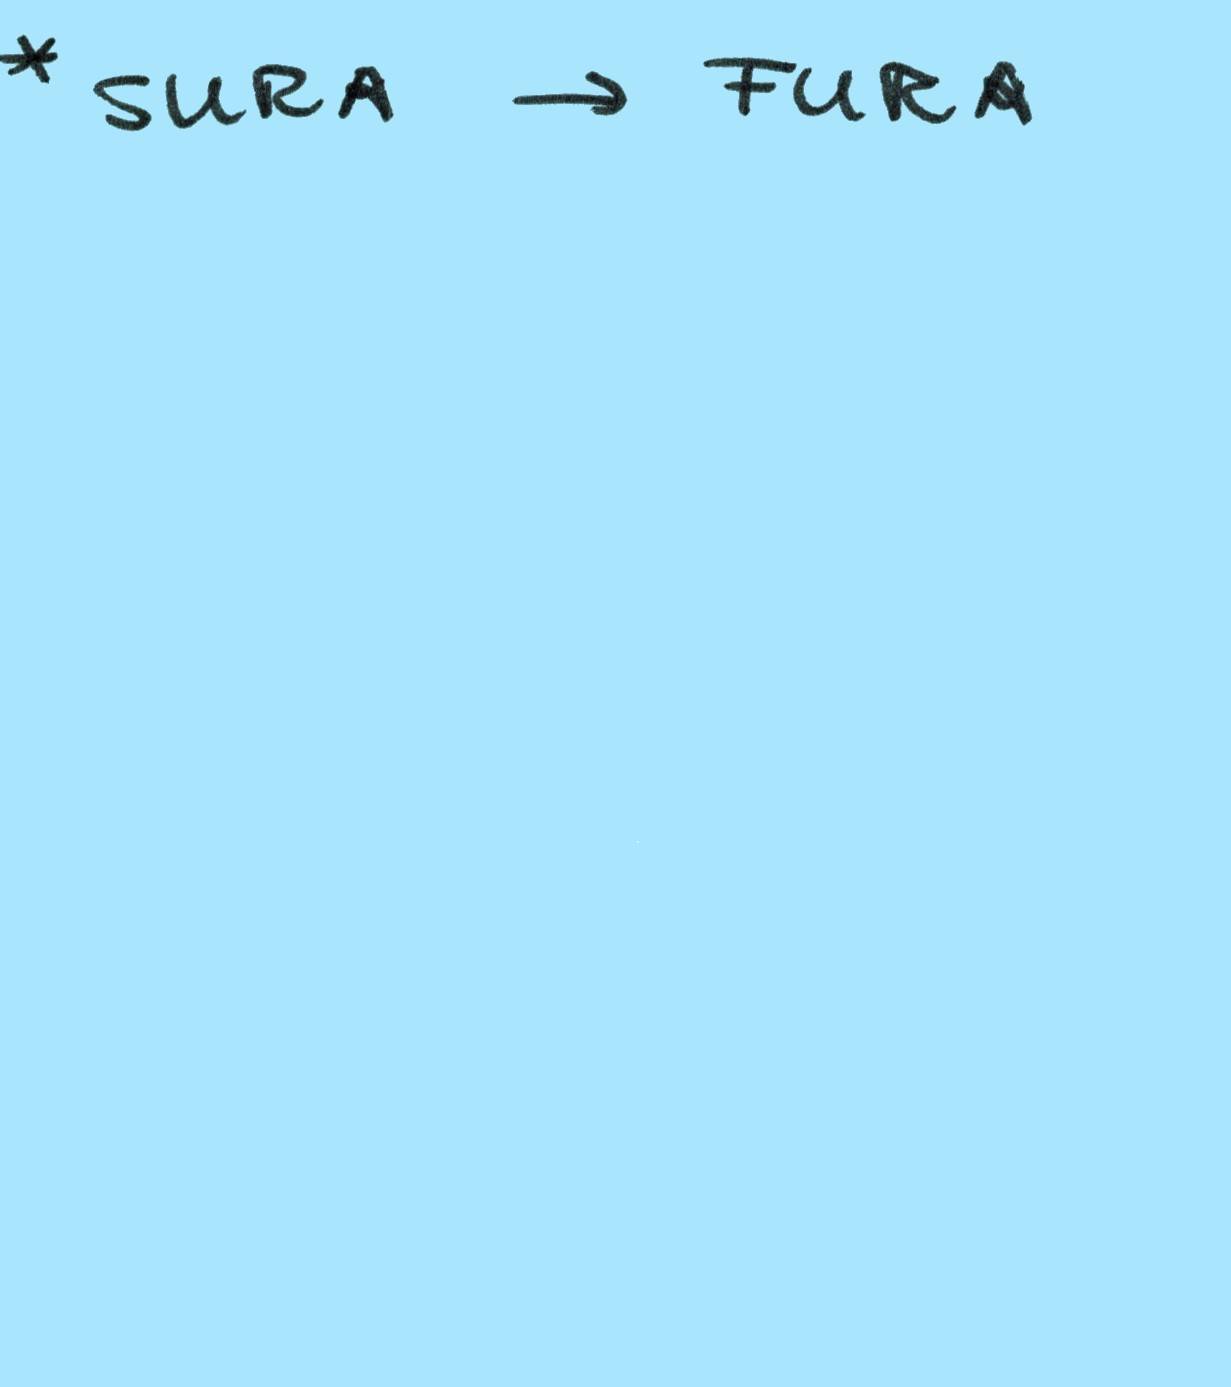 * SURA → FURA